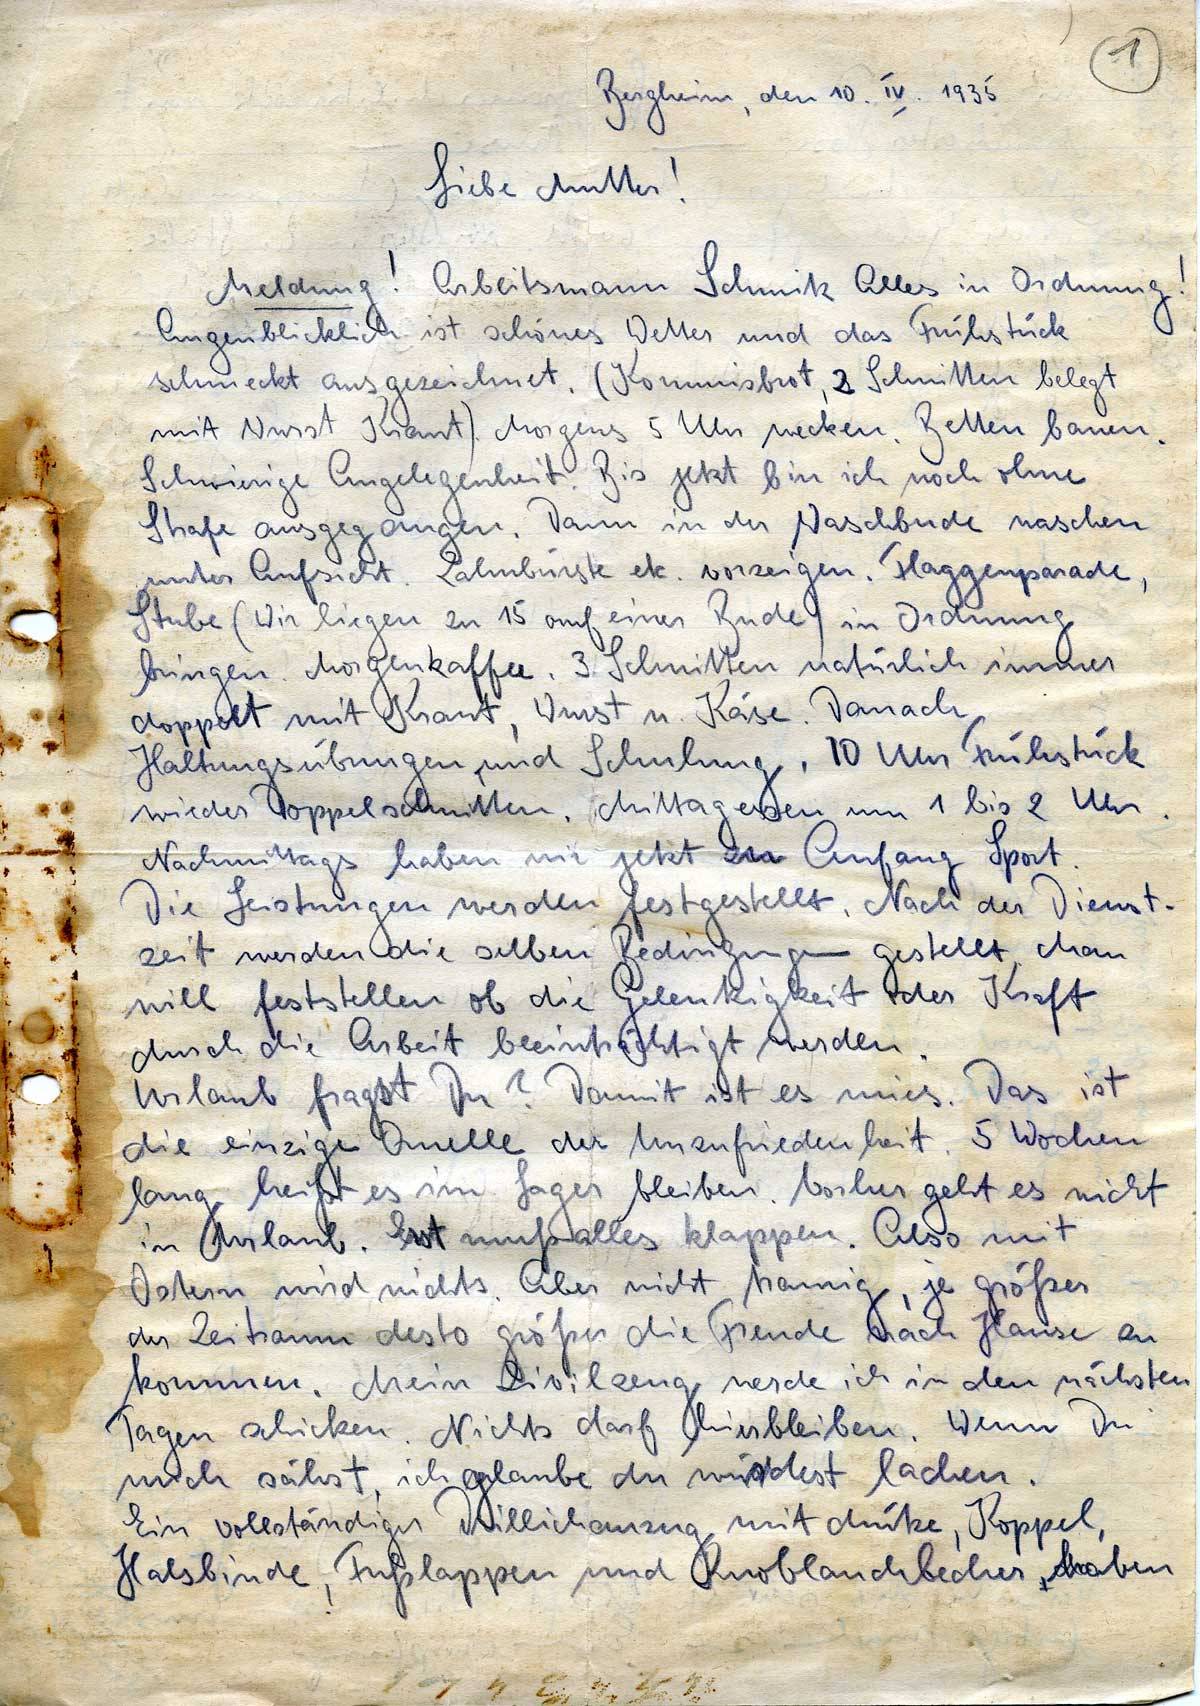 1
Bergheim, den 10. IV. 1935
Liebe Mutter!
Meldung! Arbeitsmann Schmik Alles in Ordnung!
Augenblicklich ist schönes Wetter und das Frühstück
schmeckt ausgezeichnet. (Kommisbrot, 2 Schnitten belegt
mit Wurst Kraut). Morgens 5 Uhr wecken. Betten bauen.
Schwierige Angelegenheit. Bis jetzt bin ich noch ohne
Strafe ausgegangen. Dann in der Waschbude waschen
unter Aufsicht. Zahnbürste etc. vorzeigen. Flaggenparade,
Stube (Wir liegen zu 15 auf einer Bude) in Ordnung
bringen. Morgenkaffee. 3 Schnitten natürlich immer
doppelt mit Kraut, Wurst u. Käse. Danach
Haltungsübungen und Schulung. 10 Uhr Frühstück
wieder Doppelschnitten. Mittagessen um 1 bis 2 Uhr.
Nachmittags haben wir jetzt zu Anfang Sport.
Die Leistungen werden festgestellt. Nach der Dienst-
zeit werden die selben Bedingungen gestellt. Man
will feststellen ob die Gelenkigkeit oder Kraft
durch die Arbeit beeinträchtigt werden.
Urlaub fragst Du? Damit ist es mies. Das ist
die einzige Quelle der Unzufriedenheit. 5 Wochen
lang heißt es im Lager bleiben. Vorher geht es nicht
in Urlaub. Erst muß alles klappen. Also mit
Ostern wird nichts. Aber nicht traurig, je größer
der Zeitraum desto größer die Freude nach Hause zu
kommen. Mein Zivilzeug werde ich in den nächsten
Tagen schicken. Nichts darf hierbleiben. Wenn Du
mich sähst, ich glaube du würdest lachen.
Ein vollständiger Drillichanzug mit Mütze, Koppel,
Halsbinde, Fußlappen und Knoblauchbecher, haben